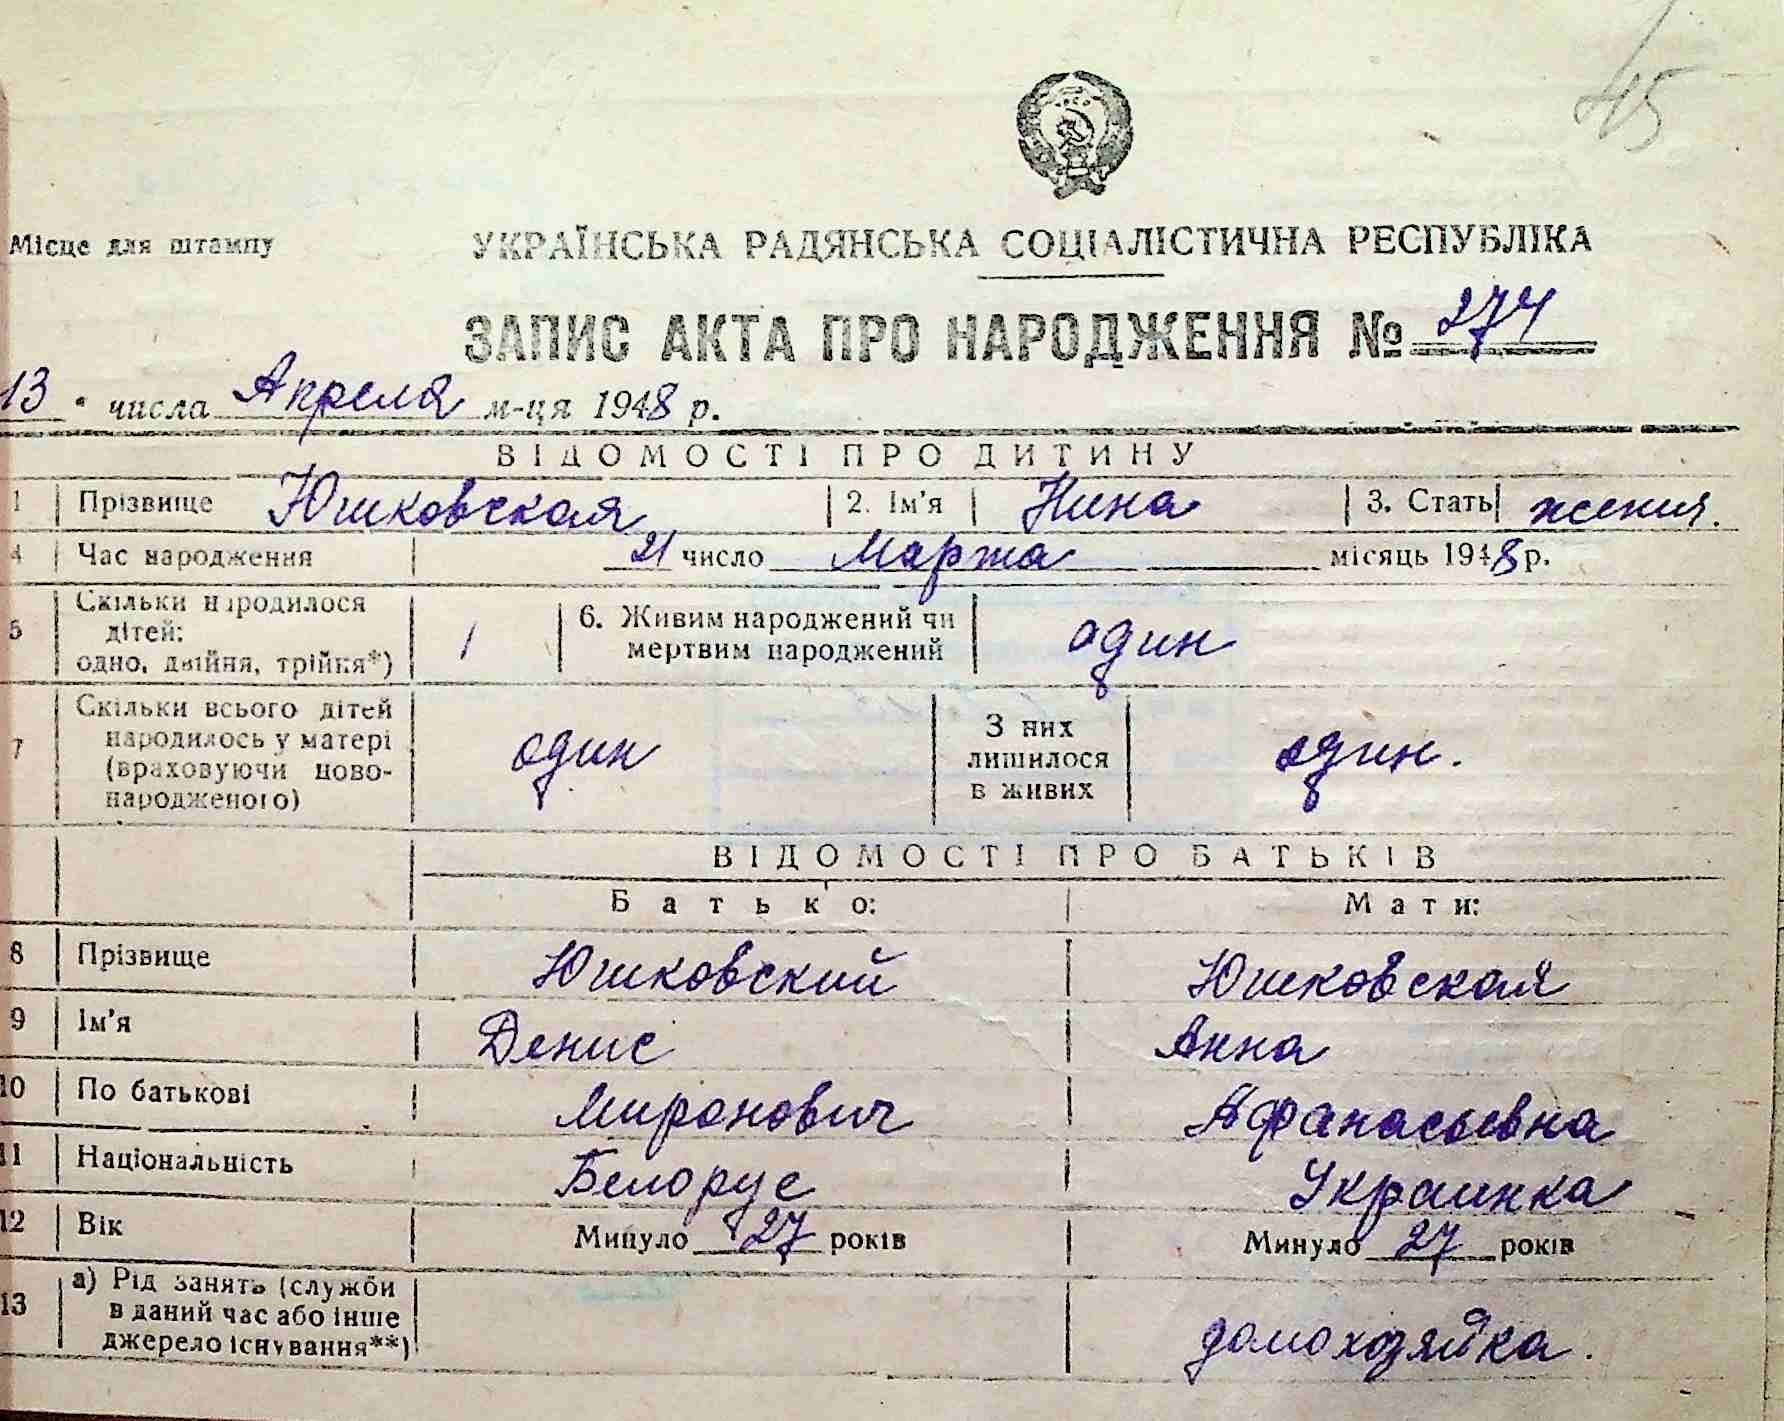 45
Місце для штампу
УКРАЇНСЬКА РАДЯНСЬКА СОЦІАЛІСТИЧНА РЕСПУБЛІКА
ЗАПИС АКТА ПРО НАРОДЖЕННЯ № 274
13 числа Апреля м-ця 1948 р.
ВІДОМОСТІ ПРО ДИТИНУ
1 Прізвище Юшковская 2. Ім'я Нина 3. Стать
4 Час народження 21 число Марта місяць 1948 р.
5 Скільки народилося дітей: одно, двійня, трійня*) 1 6. Живим народжений чи мертвим народжений один
7 Скільки всього дітей народилось у матері (враховуючи ново-народженого) один З них лишилося в живих один.
ВІДОМОСТІ ПРО БАТЬКІВ
Батько: Мати:
8 Прізвище Юшковский Юшковская
9 Ім'я Денис Анна
10 По батькові Миронович Афанасьевна
11 Національність Белорус Украинка
12 Вік Минуло 27 років Минуло 27 років
13 а) Рід занять (служби в даний час або інше джерело існування**) домохозяйка.